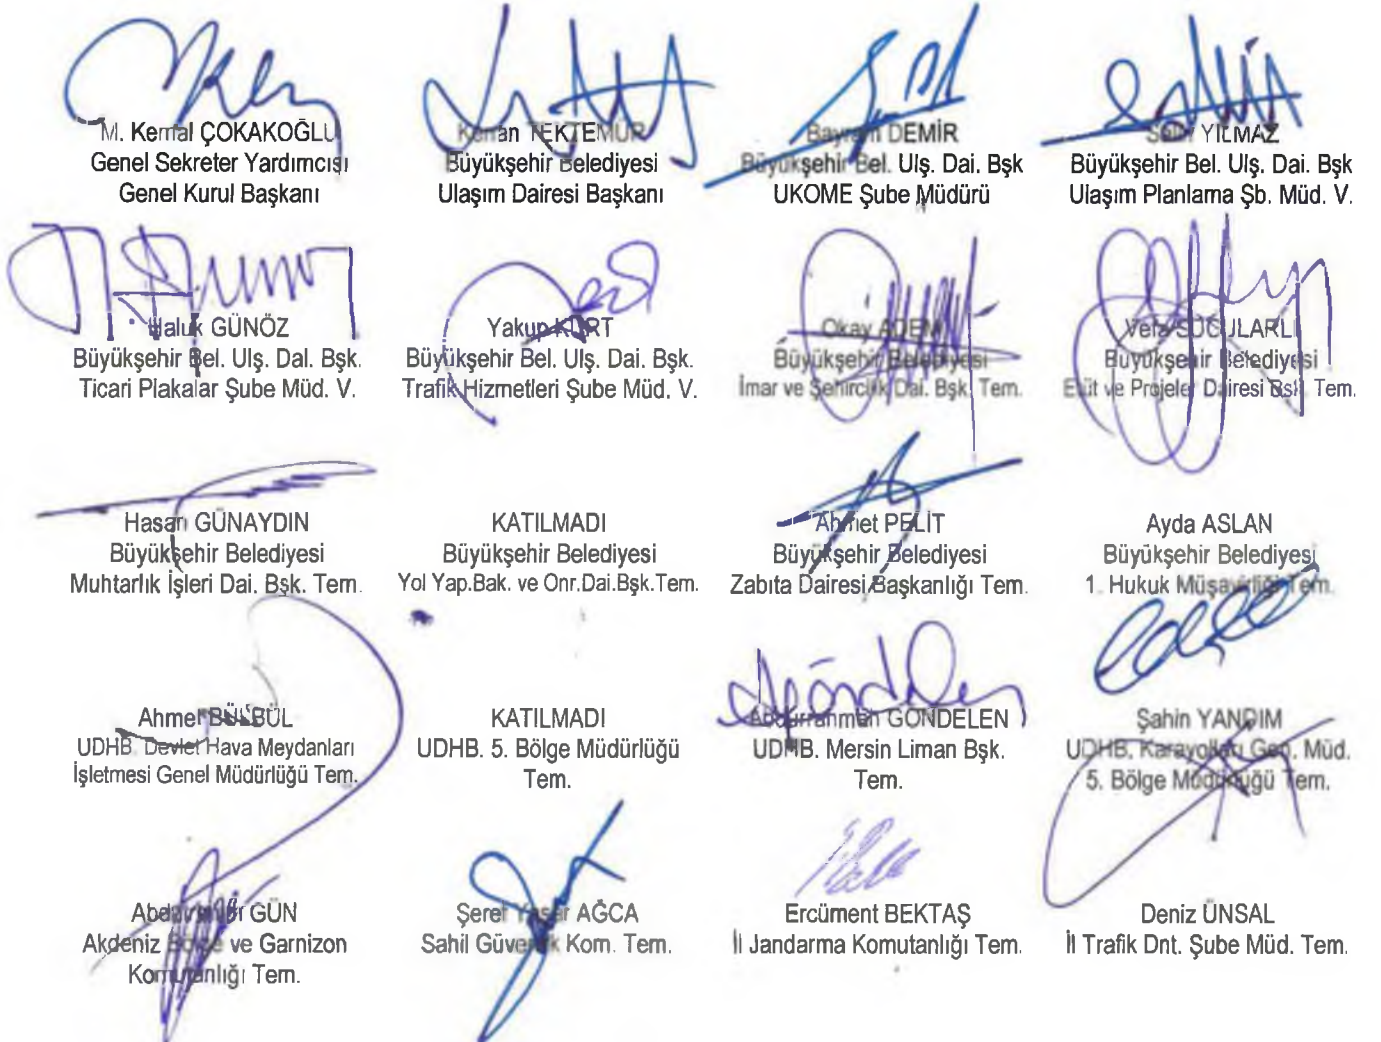 M. Kemal ÇOKAKOĞLU
Genel Sekreter Yardımcısı
Genel Kurul Başkanı
Kenan TEKTEMUR
Büyükşehir Belediyesi
Ulaşım Dairesi Başkanı
Bayram DEMİR
Büyükşehir Bel. Ulş. Dai. Bşk
UKOME Şube Müdürü
YILMAZ
Büyükşehir Bel. Ulş. Dai. Bşk
Ulaşım Planlama Şb. Müd. V.
Haluk GÜNÖZ
Büyükşehir Bel. Ulş. Dal. Bşk.
Ticari Plakalar Şube Müd. V.
Yakup KURT
Büyükşehir Bel. Ulş. Dai. Bşk.
Trafik Hizmetleri Şube Müd. V.
Okay ADEM
Büyükşehir Belediyesi
İmar ve Şehircilik Dai. Bşk. Tem.
Vefa SUCULARLI
Büyükşehir Belediyesi
Etüt ve Projeler Dairesi Bşk. Tem.
Hasan GÜNAYDIN
Büyükşehir Belediyesi
Muhtarlık İşleri Dai. Bşk. Tem.
KATILMADI
Büyükşehir Belediyesi
Yol Yap.Bak. ve Onr.Dai.Bşk.Tem.
Ahmet PELİT
Büyükşehir Belediyesi
Zabıta Dairesi Başkanlığı Tem.
Ayda ASLAN
Büyükşehir Belediyesi
1. Hukuk Müşavirliği Tem.
Ahmet BÜLBÜL
UDHB. Devlet Hava Meydanları
İşletmesi Genel Müdürlüğü Tem.
KATILMADI
UDHB. 5. Bölge Müdürlüğü
Tem.
Abdurrahman GÖNDELEN
UDHB. Mersin Liman Bşk.
Tem.
Şahin YANDIM
UDHB. Karayolları Gen. Müd.
5. Bölge Müdürlüğü Tem.
GÜN
Akdeniz Bölge ve Garnizon
Komutanlığı Tem.
Şeref Yaşar AĞCA
Sahil Güvenlik Kom. Tem.
Ercüment BEKTAŞ
İl Jandarma Komutanlığı Tem.
Deniz ÜNSAL
İl Trafik Dnt. Şube Müd. Tem.